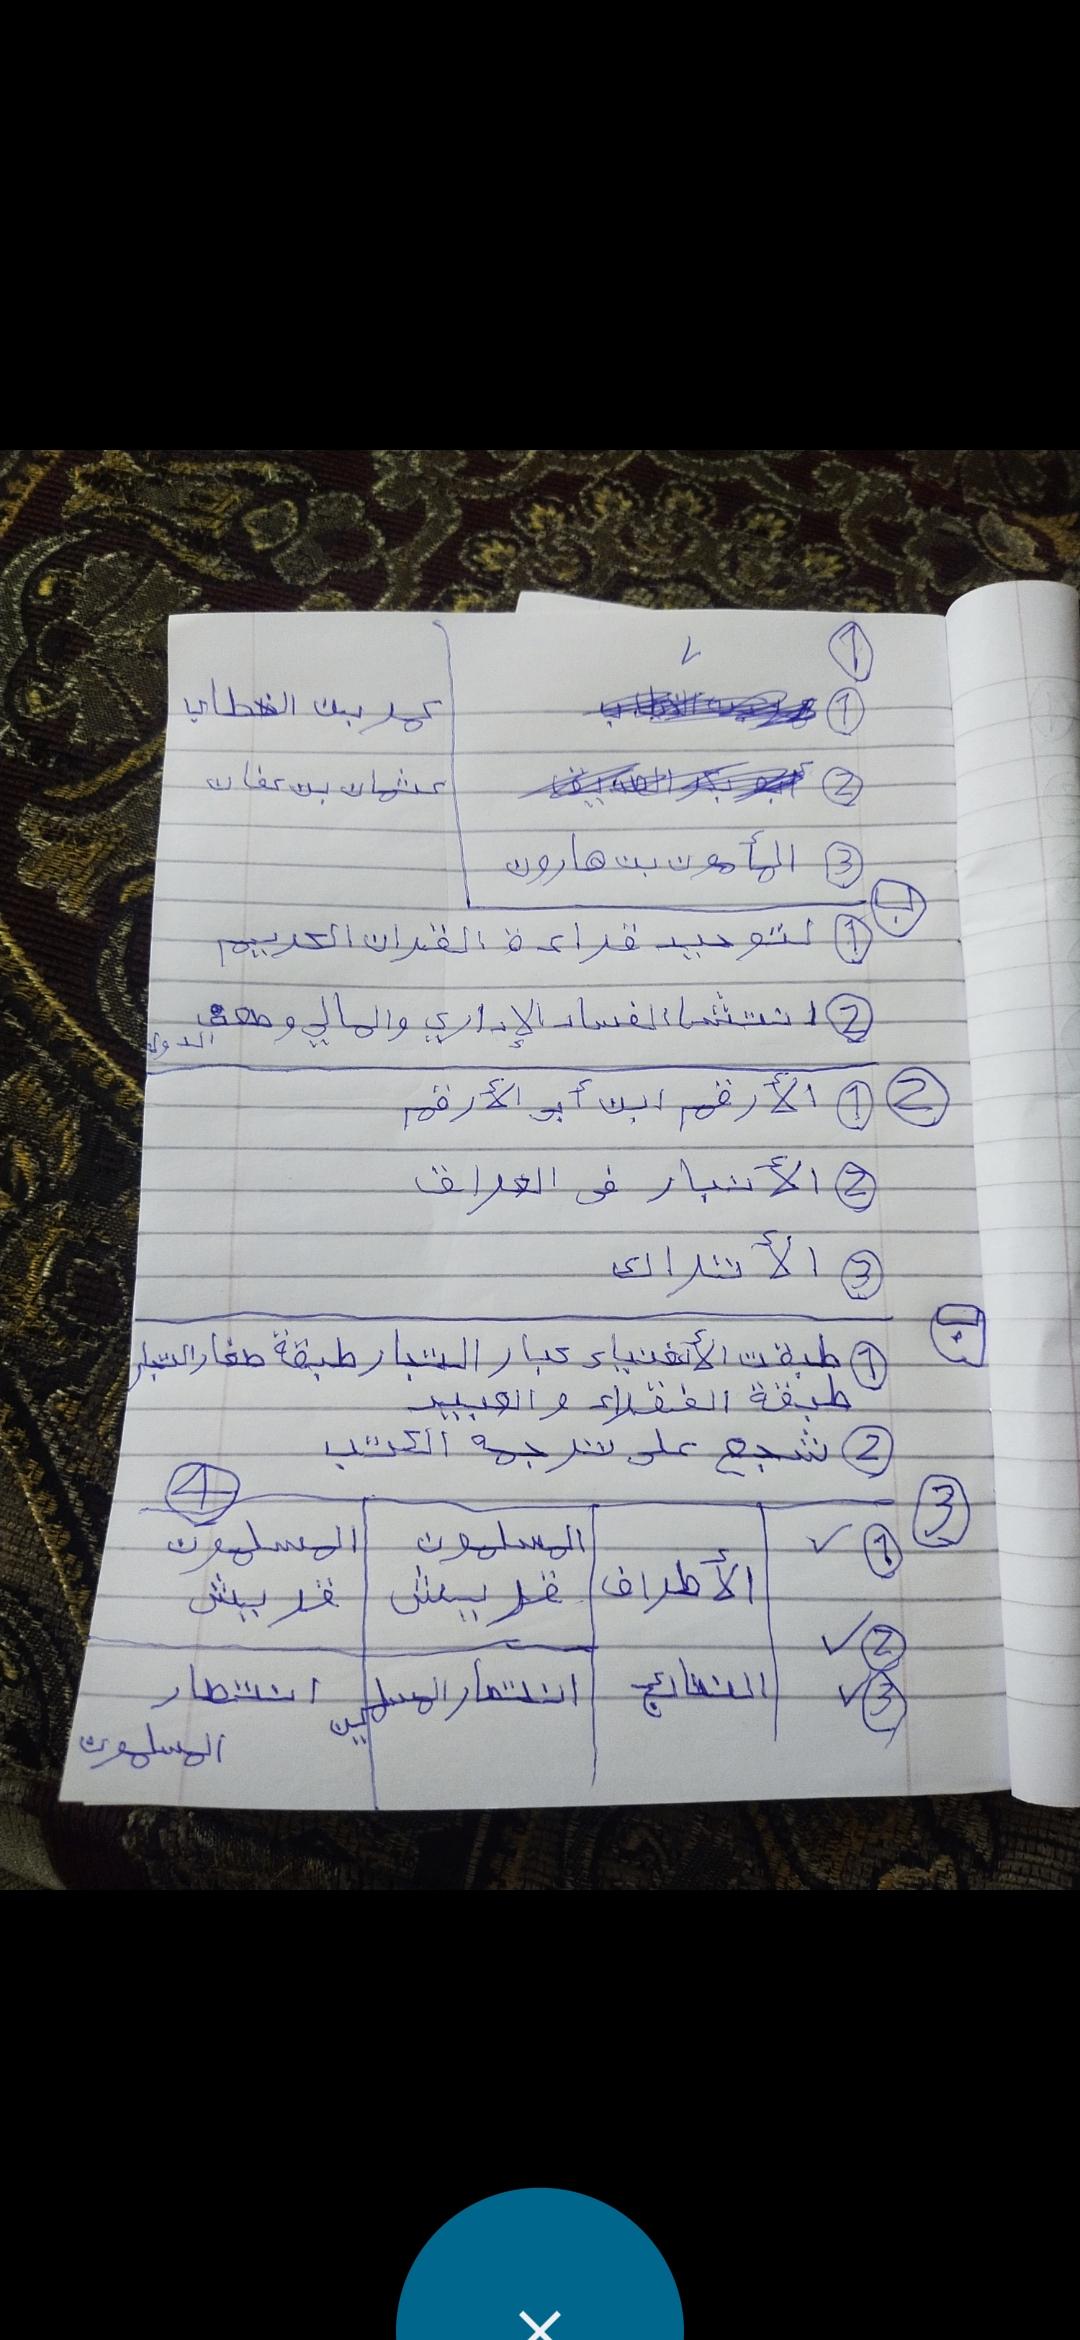 ①
①
عمر بن الخطاب
②
عثمان بن عفان
③ المأمون بن هارون
ب
① لتوحيد قراءة القران الكريم
② انتشا الفساد الإداري والمالي وضعف
الدولة
②
① الأرقم ابن أبو الأرقم
② الأنبار فى العراق
③ الأتراك
ب
① طبقت الأغنياء كبار التجار طبقة صغار التجار
طبقة الفقراء والعبيد
② شجع على ترجمه الكتب
③
① ✓
② ✓
③ ✓
④
الأطراف المسلمون المسلمون
قريش قريش
النتائج انتصار المسلمين انتصار
المسلمون